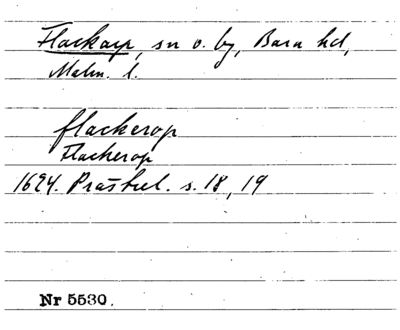 Flackarp, sn o. by, Bara hd,
Malm. l.
flackerop
Flackerop
1624. Prästrel. s. 18, 19
Nr 5530.